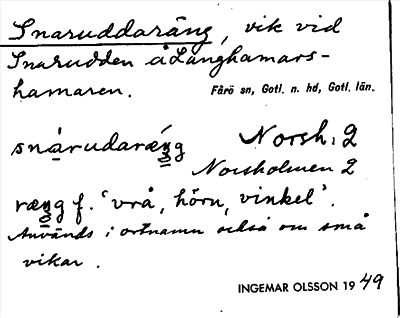 Snaruddaräng, vik vid
Snarudden å Langhamars-
hamaren.
Fårö sn, Gotl. n. hd, Gotl. län.
snarudaræŋg Norsh. 2
Norsholmen 2
ræŋg f. 'vrå, hörn, vinkel'.
Används i ortnamn också om små
vikar.
INGEMAR OLSSON 1949